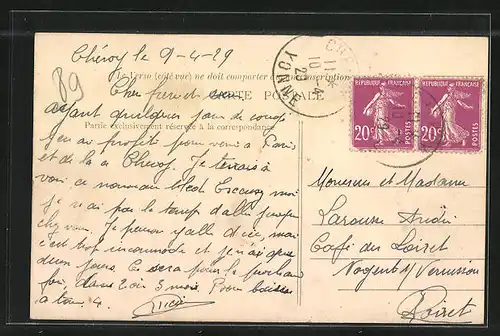 Chéroy le 9-4-29
89
Le Verso (côté vue) ne doit comporter aucune inscription
CARTE POSTALE
Cher frère et
ayant quelques jours de congé
Partie exclusivement réservée à la correspondance
j'en ai profité pour venir à Paris
et de là à Cheroy. Je tenais à
voir ce nouveau bled. Excusez moi
je n'ai pas le temps d'aller jusque
chez vous. Je pensais y aller d'ici, mais
c'est trop incommode et je n'ai que
deux jours. Ce sera pour la prochaine
fois, dans 2 ou 3 mois. Bons baisers
à tous 4
YONNE
REPUBLIQUE FRANÇAISE
20c POSTES
REPUBLIQUE FRANÇAISE
20c POSTES
Monsieur et Madame
Larousse André
Café du Loiret
Nogent s/ Vernisson
Loiret